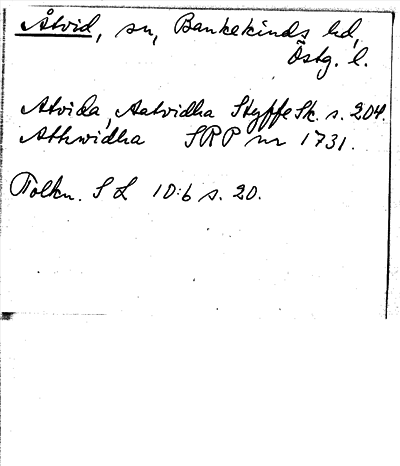 Åtvid, sn, Bankekinds hd,
Östg. l.
Atvida, Aatvidha Styffe Sk. s. 204.
Athwidha SRP nr 1731.
Tolkn. SL 10:6 s. 20.